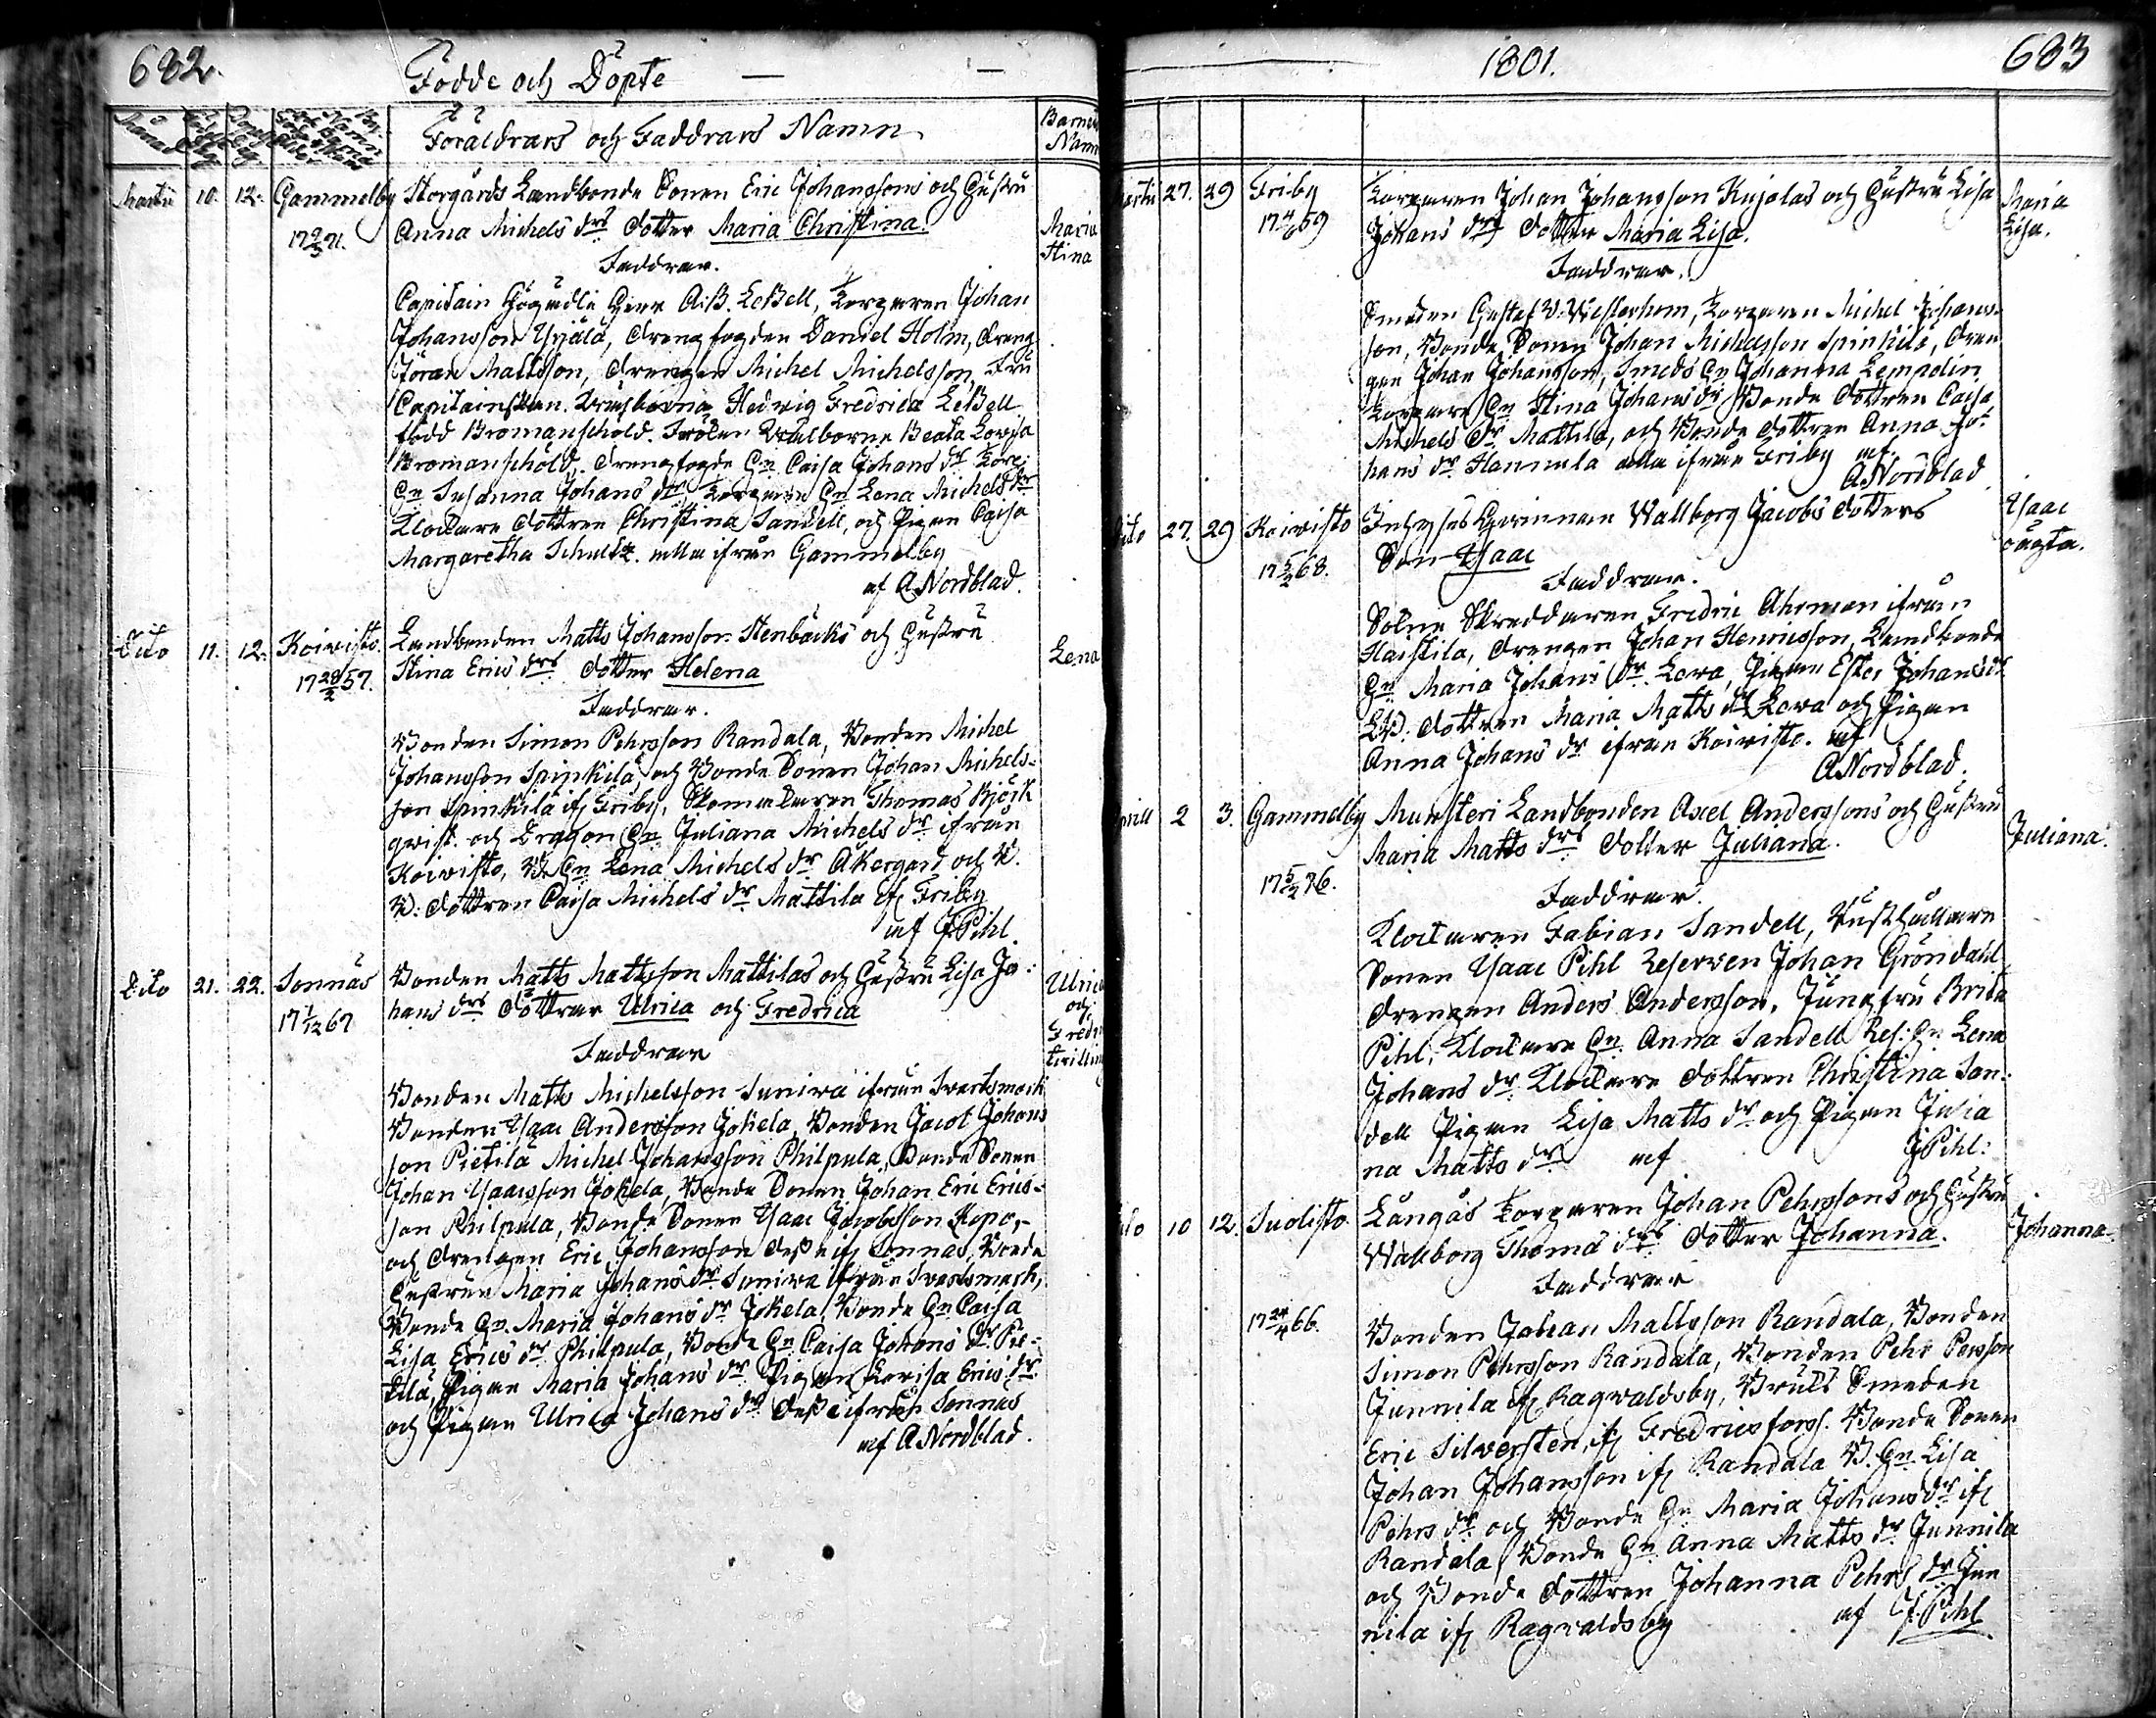 682.
Födde och Döpte
Föräldrars och Faddrars Namn
Barnens
Namn
Martii 10. 12. Gammelby Storgårds Landbonde Sonen Eric Johanssons och Hustru
17 9/3 71. Anna Michels drs dotter Maria Christina.
Maria
Stina
Faddrar.
Capitain Högädle Herr A:B. LeBell, Torparen Johan
Johansson Yrjälä, drengfogden Daniel Holm, dreng
Jöran Mattsson, drengen Michel Michelsson, Fru
Capitainskan. Hedwig Fredrica LeBell
född Bromanschöld. Fröken Wälborne Beata Lovisa
Bromanschöld, drengfogde Hn Caisa Johans dr
Hn Susanna Johans dr, Hn Lena Michels dr
Klockare dottren Christina Sandell, och Pigan Caisa
Margaretha Schultz. alla ifrån Gammelby
af A Nordblad.
Dito 11. 12. Koivisto. Landbonden Matts Johansson Stenbäcks och Hustru
17 28/2 57. Stina Erics drs dotter Helena
Lena
Faddrar.
Bonden Simon Pehrsson Randala, Bonden Michel
Johansson Spinkilä, och Bonde Sonen Johan Michels-
son Spinkilä if Friby, Skomakaren Thomas Björk
qvist. och Dragon Hn Juliana Michels dr ifrån
Koivisto, B. Hn Lena Michels dr Åkergård och B.
B: dottren Caisa Michels dr Mattila if Friby
af J Pihl
Dito 21. 22. Sonnäs Bonden Matts Mattsson Mattilas och Hustru Lisa Jo:
17 1/12 67 hans drs döttrar Ulrica och Fredrica
Ulrica
och
Fredr
Faddrar
Bonden Matts Michelsson Suniwa ifrån Svartsmark
Bonden Isaac Andersson Jokela, Bonden Jacob Johans
son Pietilä Michel Johansson Philpula, Bonde Sonen
Johan Isaacsson Jokela, Bonde Sonen Johan Eric Erics-
son Philpula, Bonde Sonen Isaac Jacobsson Kopo,-
och drengen Eric Johansson desse if Sonnäs, Bonde
Hustrun Maria Johans dr Suniwa ifrån Svartsmark,
Bonde Hn. Maria Johans dr Jokela, Bonde Hn Caisa
Lisa Erics dr Philpula, Bonde Hn Caisa Johans dr Pie-
tilä, Pigan Maria Johans dr Pigan Lovisa Erics dr
och Pigan Ulrica Johans dr desse ifrån Sonnäs
af A Nordblad.
1801.
683
Martii 27. 29 Friby Torparen Johan Johansson Kujalas och Hustru Lisa
17 4/6 59 Johans drs dotter Maria Lisa.
Maria
Lisa.
Faddrar.
Smeden Gustaf W. Westerholm, Torparen Michel Johans-
son, Bonde Sonen Johan Michelsson Spinkilä, dren
gen Johan Johansson, Smeds Hn Johanna Lempelin
Torpare Hn Stina Johans dr Bonde dottren Caisa
Michels dr Mattila, och Bonde dottren Anna Jo-
hans dr Hannula alla ifrån Friby af
A Nordblad
Dito 27. 29 Koivisto Inhyses Qvinnan Wallborg Jacobs dotters
17 5/2 68. Son Isaac
Isaac
oägta.
Faddrar.
Sokne Skreddaren Fredric Ahrman ifrån
Haistila, drengen Johan Henricsson, Landbonde
Hn Maria Johans dr Lewa, Pigan Ester Johans dr
LB: dottren Maria Matts dr Lewa och Pigan
Anna Johans dr ifrån Koivisto. af
A Nordblad.
Aprill 2 3. Gammelby Munsteri Landbonden Axel Anderssons och Hustru
Maria Matts drs dotter Juliana.
Juliana.
17 5/2 76.
Faddrar.
Klockaren Fabian Sandell, Rusthållare
Sonen Isaac Pihl Reserven Johan Gröndahl
drengen Anders Andersson, Jungfru Brita
Pihl, Klockare Hn. Anna Sandell Res: Hn Lena
Johans dr. Klockare dottren Christina San-
dell Pigan Lisa Matts dr och Pigan Julia
na Matts dr af J Pihl:
Dito 10 12. Suolisto Långås Torparen Johan Pehrssons och Hustru
Wallborg Thomas drs dotter Johanna.
Johanna.
Faddrar
17 24/4 66. Bonden Johan Mattsson Randala, Bonden
Simon Pehrsson Randala, Bonden Pehr Persson
Junnila if Ragvaldsby, Bruks Smeden
Eric Silversten, if Fredricsfors. Bonde Sonen
Johan Johansson if Randala B. Hn. Lisa
Pehrs dr. och Bonde Hn Maria Johans dr if
Randala, Bonde Hn. Anna Matts dr Junnila
och Bonde dottren Johanna Pehrs dr Jun
nila if Ragvaldsby af J. Pihl